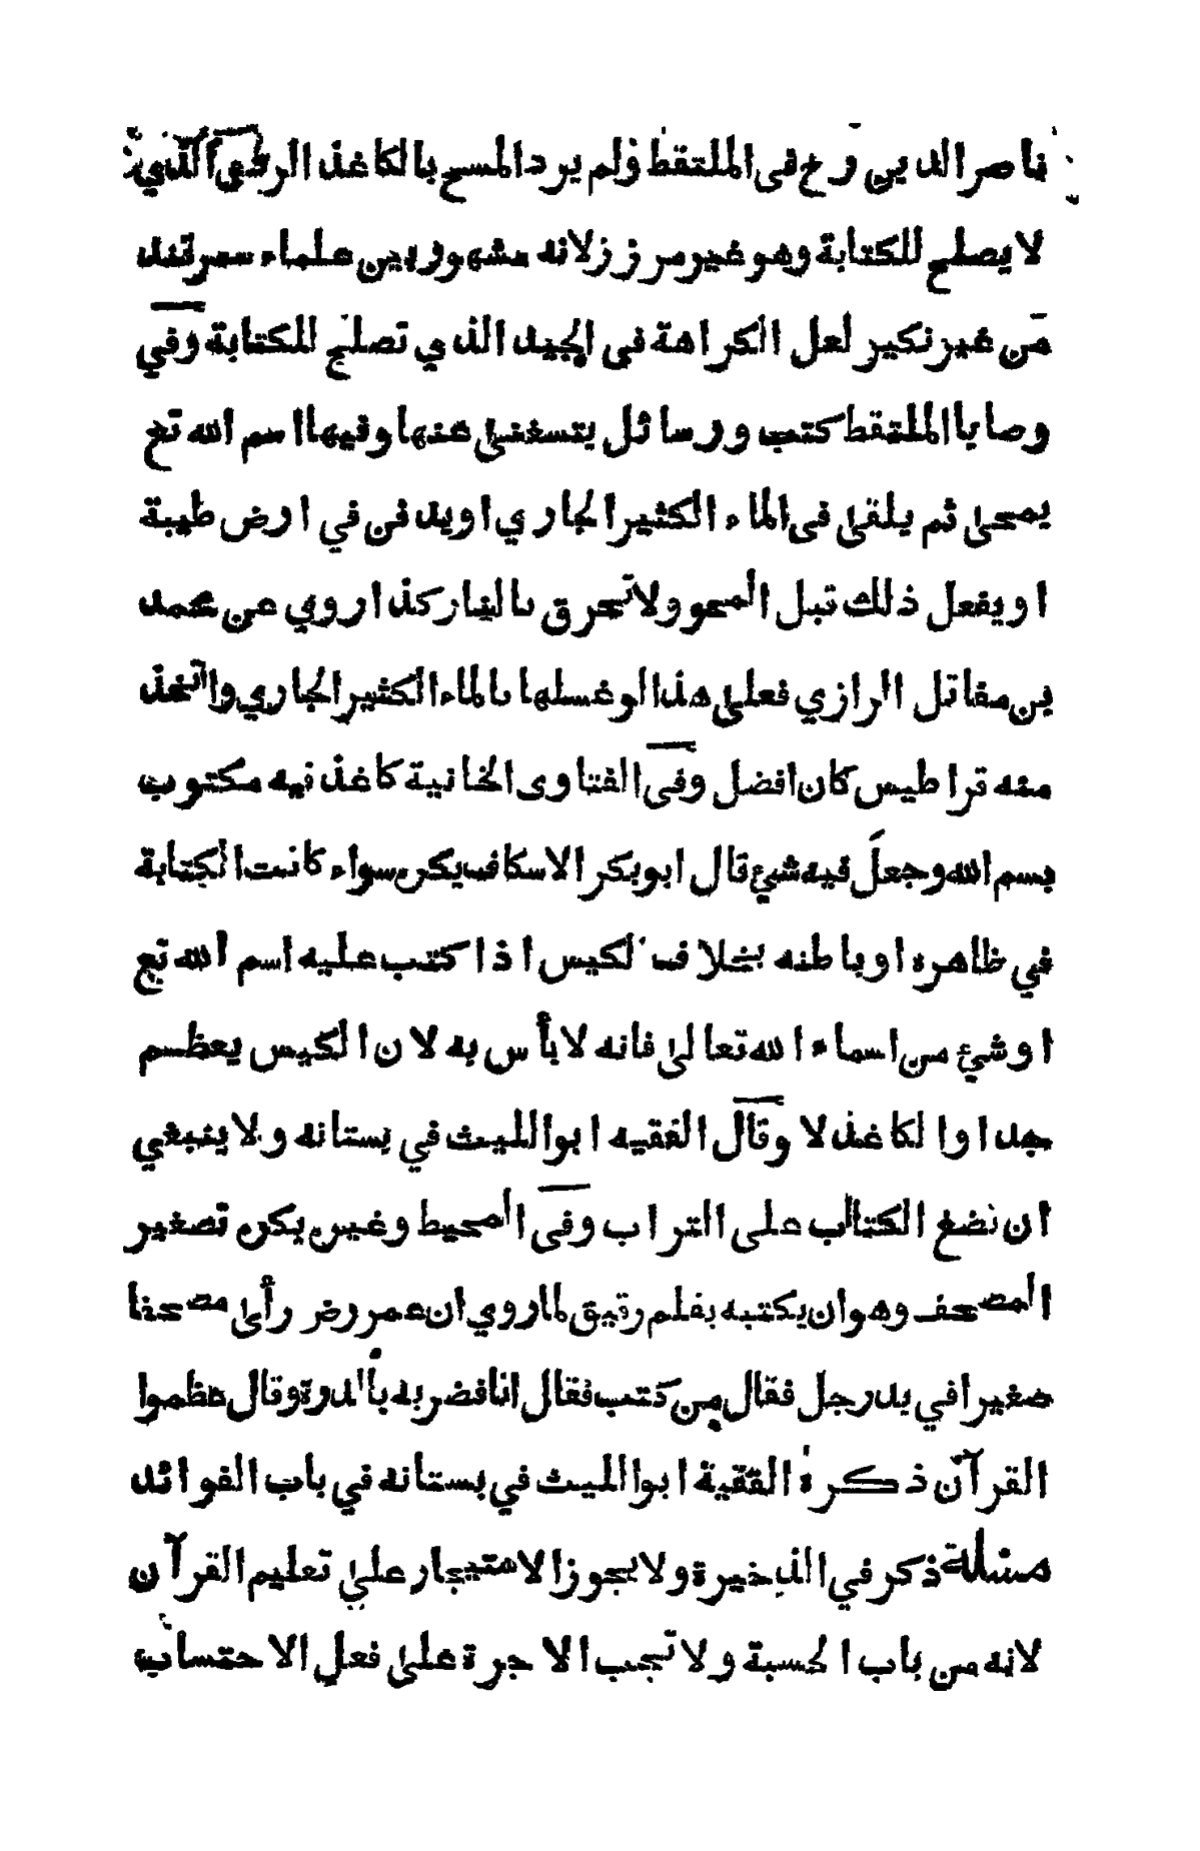 ناصر الدين رخ فى الملتقط ولم يرد المسح بالكاغذ الرقي الذي
لا يصلح للكتابة وهو غير مرز زلانه مشهور بين علماء سمرقند
من غير نكير لعل الكراهة فى الجيد الذي تصلح للكتابة وفي
وصايا الملتقط كتب ورسائل يتسغنى عنها وفيها اسم الله تع
يمحى ثم يلقى فى الماء الكثير الجاري او يدفن في ارض طيبة
او يفعل ذلك قبل المحو ولا تحرق بالنار كذا روي عن محمد
بن مقاتل الرازي فعلى هذا لو غسلها بالماء الكثير الجاري واتخذ
منه قراطيس كان افضل وفى الفتاوى الخانية كاغذ فيه مكتوب
بسم الله وجعل فيه شئ قال ابو بكر الاسكاف يكره سواء كانت الكتابة
في ظاهره او باطنه بخلاف الكيس اذا كتب عليه اسم الله تع
او شئ من اسماء الله تعالى فانه لا بأس به لان الكيس يعظم
جدا والكاغذ لا وقال الفقيه ابو الليث في بستانه ولا ينبغي
ان نضع الكتاب على التراب وفى المحيط وغيره يكره تصغير
المصحف وهو ان يكتبه بقلم رقيق لما روي ان عمر رض رأى مصحفا
صغيرا في يد رجل فقال من كتب فقال انا فضربه بالدرة وقال عظموا
القرآن ذكره الفقية ابو الليث في بستانه في باب الفوائد
مسئلة ذكر في الذخيرة ولا يجوز الاستيجار على تعليم القرآن
لانه من باب الحسبة ولا تجب الاجرة على فعل الاحتساب